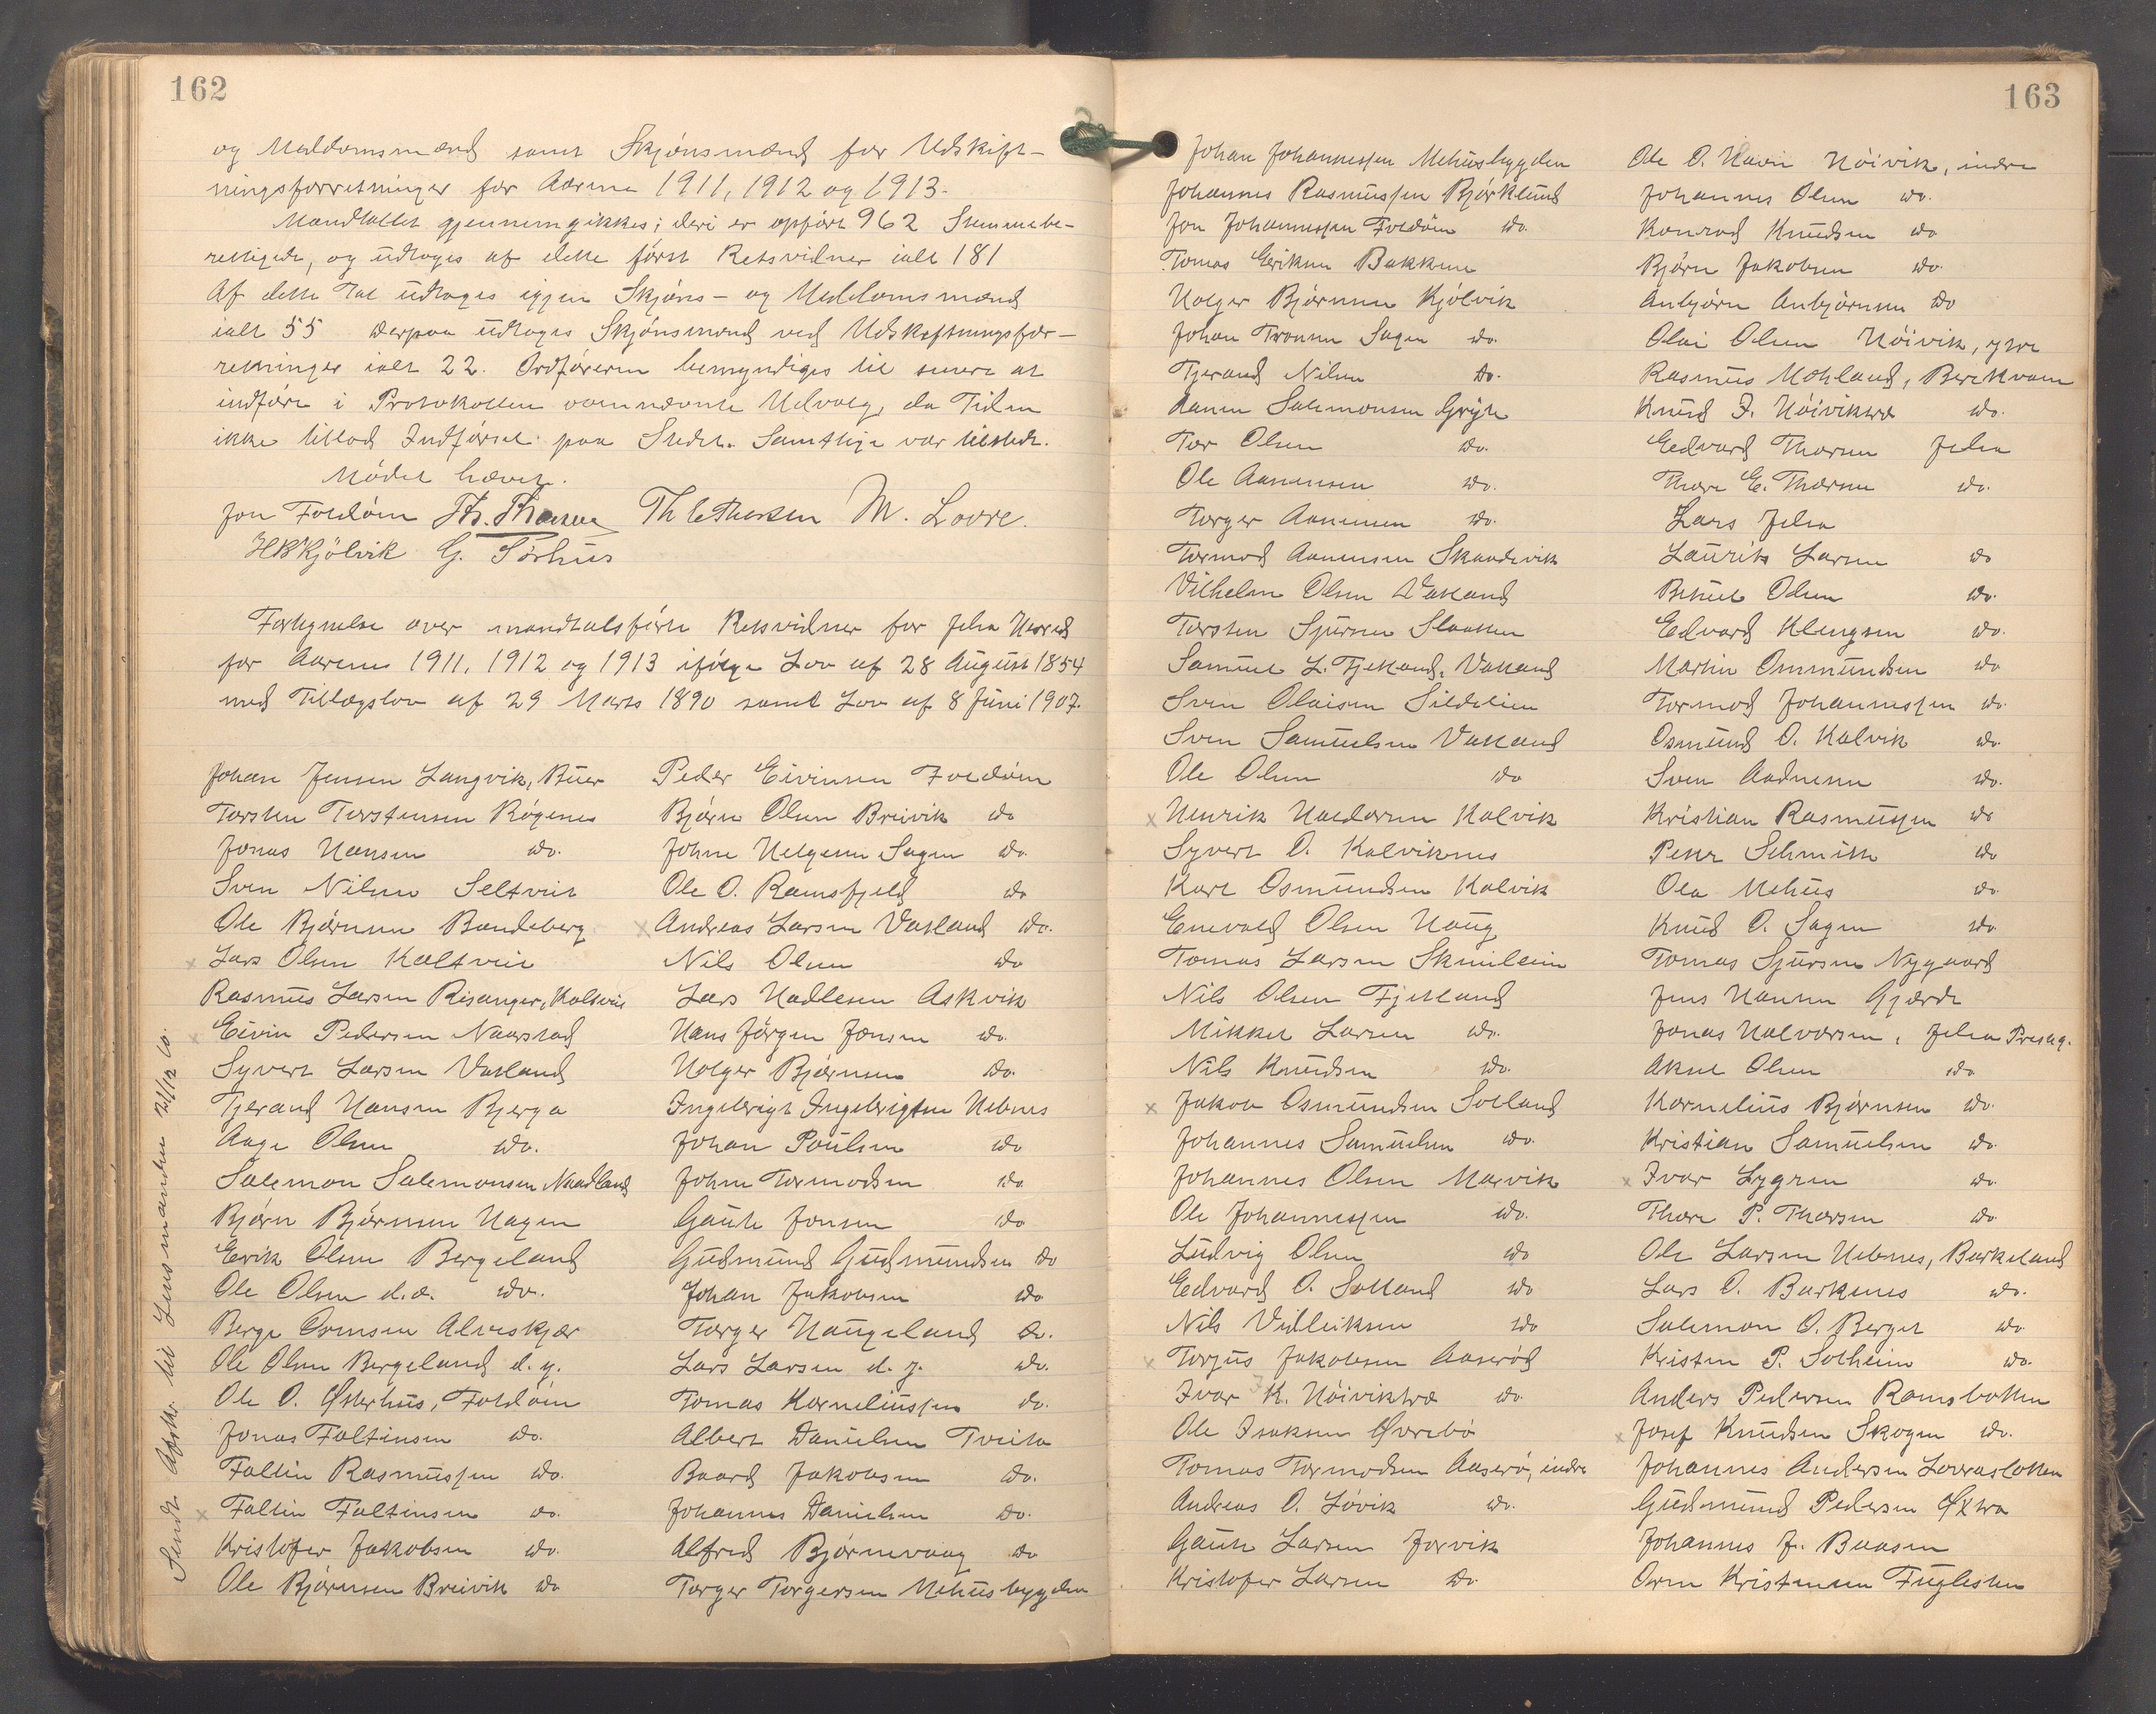 162
og Meddomsmænd samt Skjönsmænd for Udskift-
ningsforretninger for Aarene 1911, 1912 og 1913.
Mandtallet gjennemgikkes; deri er opfört 962 Stemmebe-
rettigede, og udtoges af dette först Retsvidner ialt 181
Af dette Tal udtoges igjen Skjöns- og Meddomsmænd
ialt 55 Derpaa udtoges Skjönsmænd ved Udskiftningsfor-
retninger ialt 22. Ordföreren bemyndiges til senere at
indföre i Protokollen ovennævnte Udvalg, da Tiden
ikke tillod Indförsel paa Stedet. Samtlige var tilstede.
Mödet hævet.
Jon Foldöin Th. Thorsen Th E Thorsen M. Lovre.
HBKjölvik G. Sörhus
Fortegnelse over mandtalsförte Retsvidner for Jelsa Herred
for Aarene 1911, 1912 og 1913 ifölge Lov af 28 August 1854
med Tillægslov af 29 Marts 1890 samt Lov af 8 Juni 1907.
Johan Jensen Langvik, Buer
Torsten Torstensen Rögenes
Jonas Hansen do.
Sven Nilsen Seltveit
Ole Björnsen Bandeberg
x Lars Olsen Kaltveit
Rasmus Larsen Risanger, Kaltveit
x Eivin Pedersen Naarstad
Syvert Larsen Vasland
Tjerand Hansen Bjerga
Aage Olsen do.
Salemon Salemonsen Naadland
Björn Björnsen Hagen
Erik Olsen Bergeland
Ole Olsen d.æ. do.
Berge Ormsen Alveskjær
Ole Olsen Bergeland d. y.
Ole O. Østerhus, Foldöin
Jonas Faltinsen do.
Faltin Rasmussen do.
x Faltin Faltinsen do.
Kristofer Jakobsen do.
Ole Björnsen Breivik do
Peder Eivinsen Foldöin
Björn Olsen Breivik do
Johne Helgesen Sagen do.
Ole O. Ramsfjeld do
x Andreas Larsen Vasland do.
Nils Olsen do
Lars Hadlesen Askvik
Hans Jörgen Jonsen do.
Holger Björnsen do.
Ingebrigt Ingebrigtsen Hebnes
Johan Poulsen do
Johne Tormodsen do
Gaute Jonsen do
Gudmund Gudmundsen do
Johan Jakobsen do
Torger Haugeland do.
Lars Larsen d. y. do.
Tomas Korneliussen do.
Albert Danielsen Tveita
Baard Jakobsen do.
Johannes Danielsen do.
Alfred Björnevaag do
Torger Torgersen Mehusbygden
Sendt Afskr. til Lensmanden 21/12 10.
163
Johan Johannessen Mehusbygden
Johannes Rasmussen Björklund
Jon Johannessen Foldöin do.
Tomas Eriksen Bakken
Holger Björnsen Kjölvik
Johan Tronsen Sagen do.
Tjerand Nilsen do.
Aanen Salemonsen Gryte
Tor Olsen do.
Ole Aanensen do.
Torger Aanensen do.
Tormod Aanensen Skandvik
Vilhelm Olsen Vatland
Torsten Sjursen Slaatten
Samuel L. Tjelland, Vatland
Sven Olaisen Sildelien
Sven Samuelsen Vatland
Ole Olsen do
x Henrik Haldorsen Kalvik
Syvert O. Kalviknes
Karl Osmundsen Kalvik
Enevald Olsen Haug
Tomas Larsen Skeiseim
Nils Olsen Fjetland
Mikkel Larsen do.
Nils Knudsen do.
x Jakob Osmundsen Solland
Johannes Samuelsen do.
Johannes Olsen Marvik
Ole Johannessen do.
Ludvig Olsen do
Edvard O. Solland do
Nils Vidleiksen do
x Torjus Jakobsen Aaseröd
Ivar K. Höiviktræ do.
Ole Isaksen Øvrebö
Tomas Tormodsen Aaserö, indre
Andreas O. Lövik do.
Gaute Larsen Jorvik
Kristofer Larsen do.
Ole O. Havn Höivik, indre
Johannes Olsen do.
Konrad Knudsen do
Björn Jakobsen do.
Anbjörn Anbjörnsen do
Olai Olsen Höivik, ytre
Rasmus Mehland, Berekvam
Knud I. Höiviktræ do.
Edvard Thorsen Jelsa
Thore E. Thorsen do.
Lars Jelsa
Laurits Larsen do
Betuel Olsen do.
Edvard Klengsen do.
Martin Ommundsen do
Tormod Johannessen do.
Osmund O. Kalvik do.
Sven Aadnesen do.
Kristian Rasmussen do
Peter Schmith do
Ola Mehus do.
Knud O. Sagen do.
Tomas Sjursen Nygaard
Jens Hansen Gjærde
Jonas Halvorsen, Jelsa Prestg.
Aksel Olsen do
Kornelius Björnsen do.
Kristian Samuelsen do.
x Ivar Lygren do.
Thore P. Thorsen do.
Ole Larsen Hebnes, Barkeland
Lars O. Barkenes do.
Salemon O. Berget do
Kristen P. Solheim do.
Anders Pedersen Ramsbotten
x Josef Knudsen Skogen do.
Johannes Andersen Lovraslotten
Gudmund Pedersen Øxtra
Johannes J. Baasen
Orm Kristensen Fuglesten